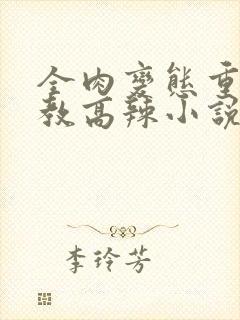 全肉變態重
教高辣小說
李玲芳